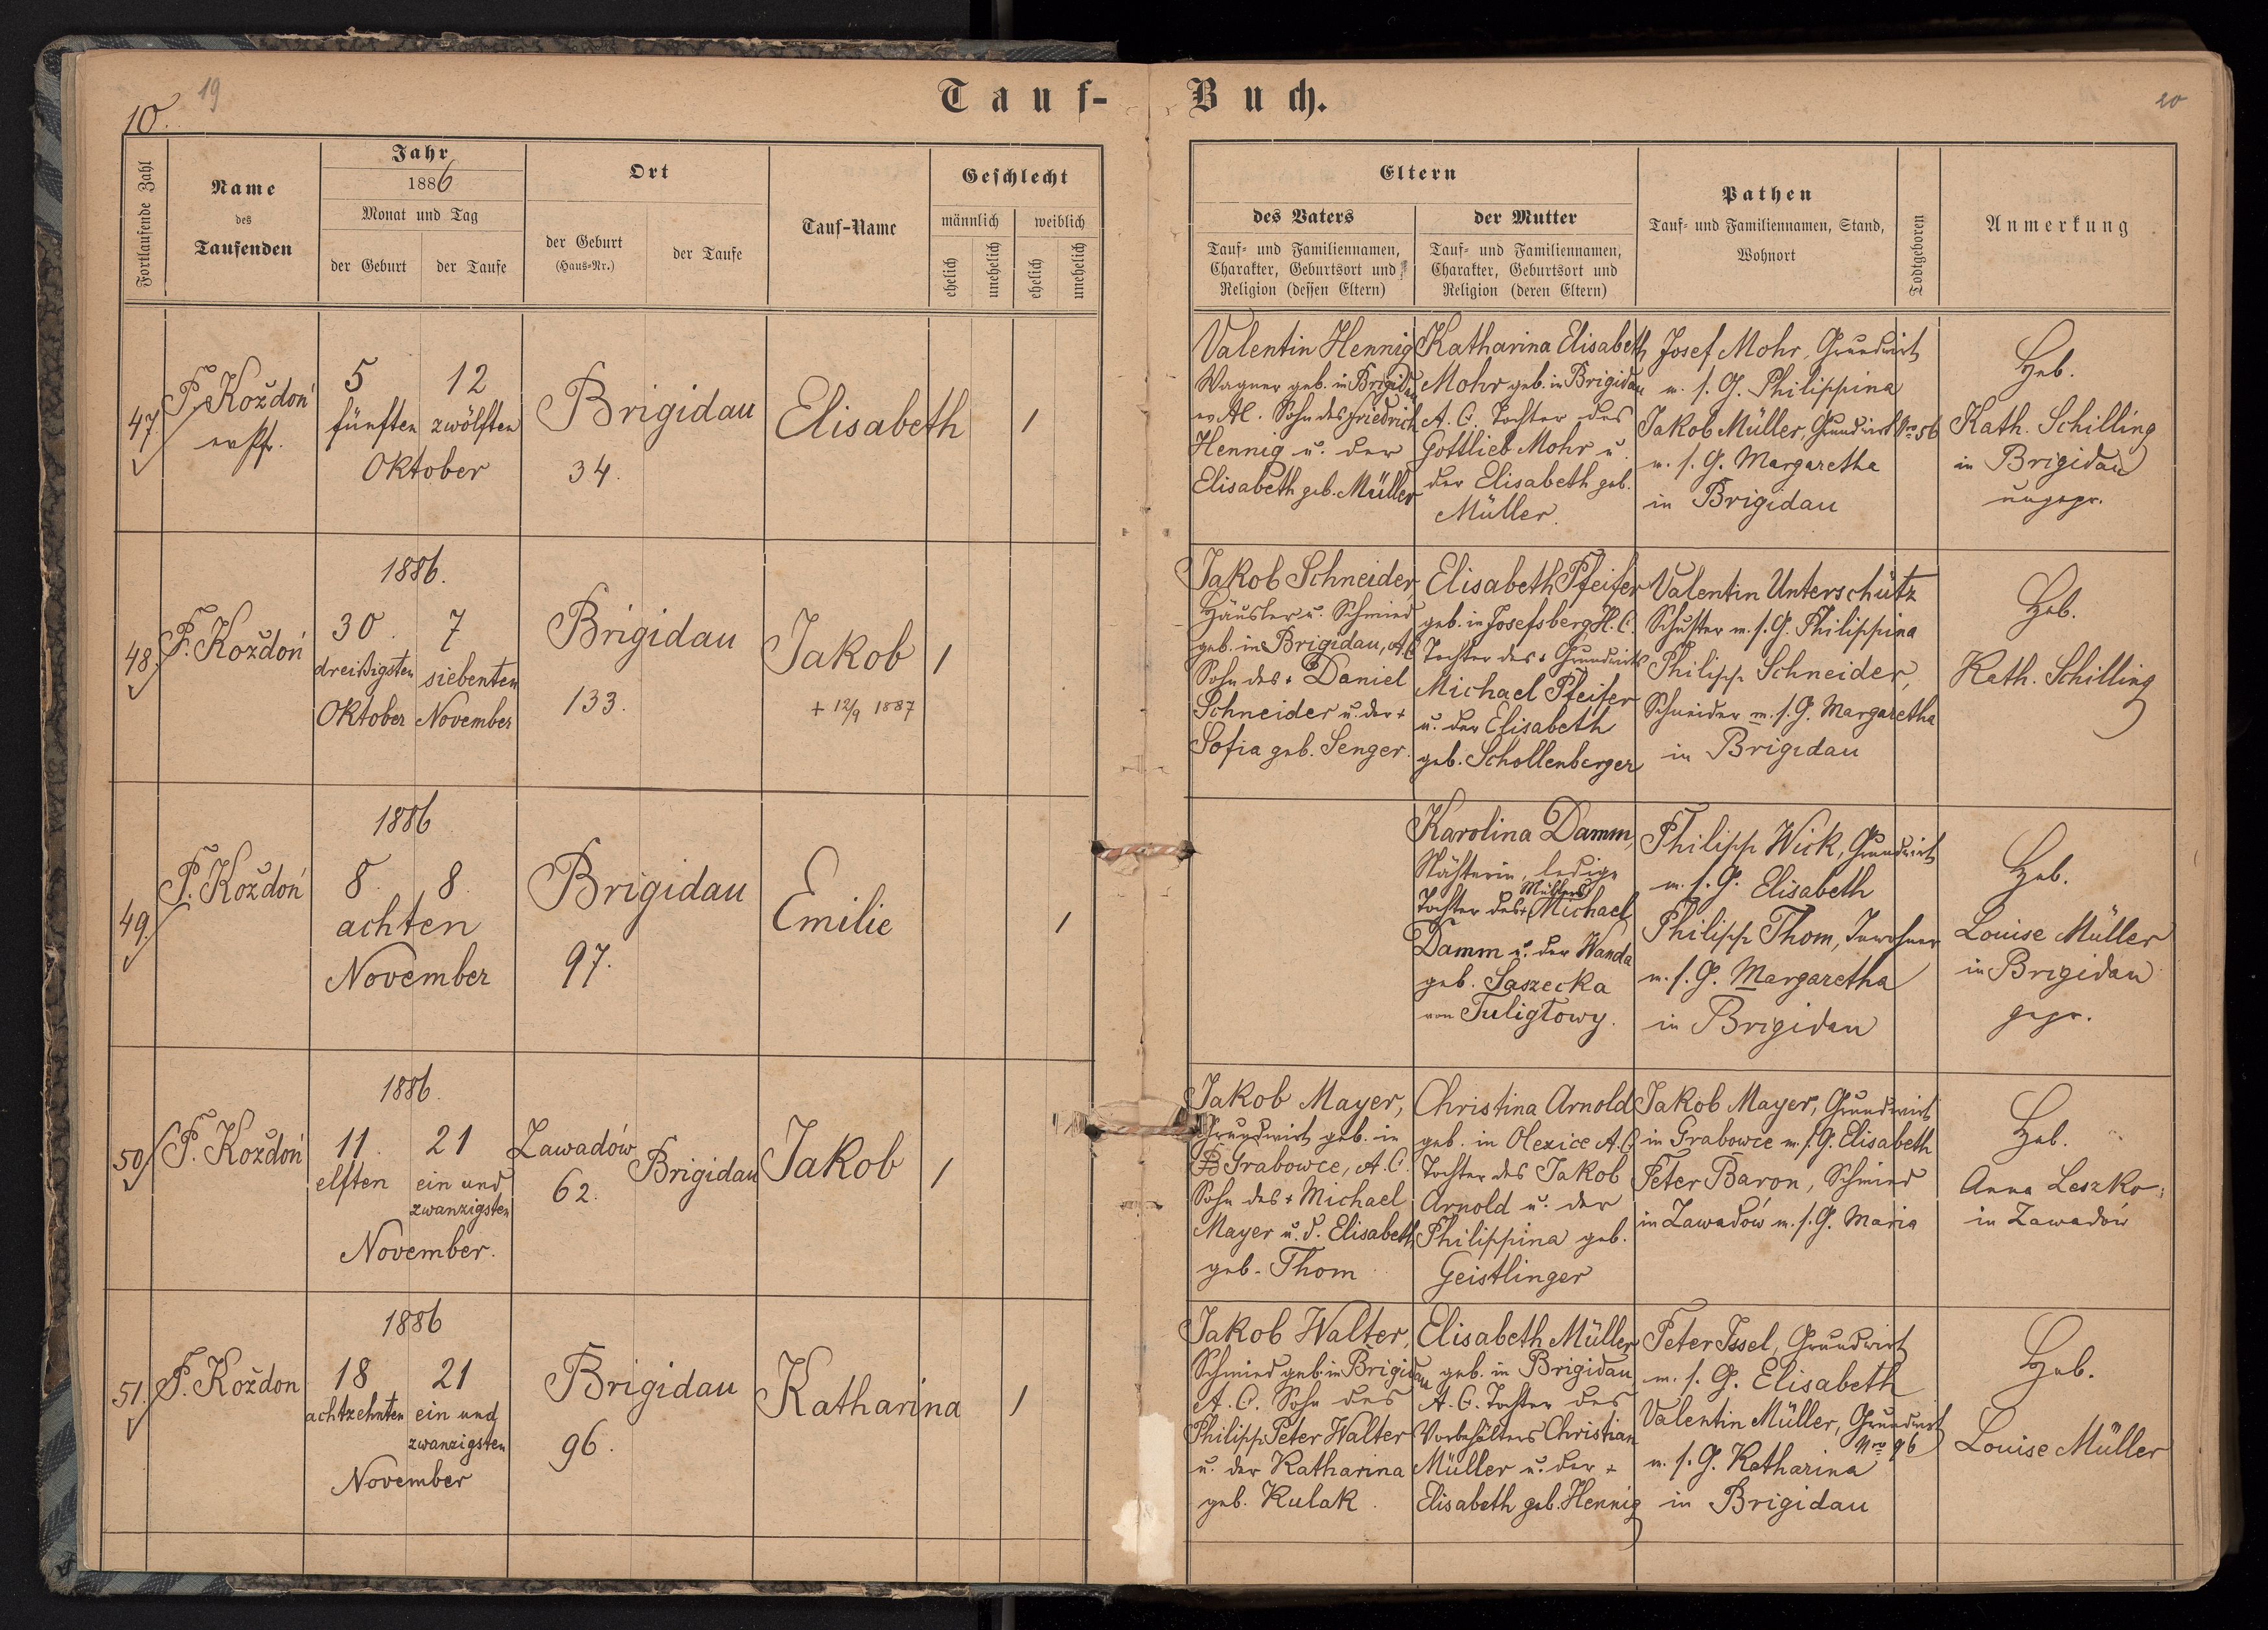 19
10.
Tauf-Buch.
20
Fortlaufende Zahl
Name
des
Taufenden
Jahr
1886
Monat und Tag
der Geburt
der Taufe
Ort
der Geburt
(Haus=Nr.)
der Taufe
Tauf-Name
Geschlecht
männlich
weiblich
ehelich
unehelich
ehelich
unehelich
Eltern
des Vaters
Tauf= und Familiennamen,
Charakter, Geburtsort und
Religion (dessen Eltern)
der Mutter
Tauf= und Familiennamen,
Charakter, Geburtsort und
Religion (deren Eltern)
Pathen
Tauf= und Familiennamen, Stand,
Wohnort
Todtgeboren
Anmerkung
47.
P. Koždoń
5
fünften
12
zwölften
Oktober
Brigidau
34.
Elisabeth
1
Valentin Hennig
Wagner geb. in Brigidau
ev. AC. Sohn des Friedrich
Hennig u. der
Elisabeth geb. Müller
Katharina Elisabeth
Mohr geb. in Brigidau
A. C. Tochter des
Gottlieb Mohr u.
der Elisabeth geb.
Müller.
Josef Mohr, Grundwirt
m. s. G. Philippina
Jakob Müller, Grundwirt Nro 56
m. s. G. Margaretha
in Brigidau
Heb.
Kath. Schilling
in Brigidau
ungepr.
48.
P. Koždoń
1886.
30.
dreißigsten
Oktober
7
siebenten
November
Brigidau
133.
Jakob
+ 12/9 1887
1
Jakob Schneider,
Häusler u. Schmied
geb. in Brigidau, A.C.
Sohn des + Daniel
Schneider u. der +
Sofia geb. Senger.
Elisabeth Pfeifer
geb. in Josefsberg H. C.
Tochter des + Grundwirts
Michael Pfeifer
u. der Elisabeth
geb. Schollenberger
Valentin Unterschütz
Schuster m. s. G. Philippina
Philipp Schneider,
Schneider m. s. G. Margaretha
in Brigidau
Heb.
Kath. Schilling
49.
P. Koždoń
1886
8.
8.
achten
November
Brigidau
97.
Emilie
1
Karolina Damm,
Nähterin, ledige
Tochter des + Müllers Michael
Damm u. der Wanda
geb. Saszecka
von Tuligłowy.
Philipp Wick, Grundwirt
m. s. G. Elisabeth
Philipp Thom, Inwohner
m. s. G. Margaretha
in Brigidau
Heb.
Louise Müller
in Brigidau
gepr.
50.
P. Koždoń
1886.
11.
elften
21
ein und
zwanzigsten
November.
Zawadów
62.
Brigidau
Jakob
1
Jakob Mayer,
Grundwirt geb. in
Grabowce, A. C.
Sohn des + Michael
Mayer u. d. Elisabeth
geb. Thom
Christina Arnold
geb. in Olexice A. C.
Tochter des Jakob
Arnold u. der
Philippina geb.
Geistlinger
Jakob Mayer, Grundwirt
in Grabowce m. s. G. Elisabeth
Peter Baron, Schmied
in Zawadów m. s. G. Maria
Heb.
Anna Leszko
in Zawadów
51.
P. Koždon
1886
18
achtzehnten
21
ein und
zwanzigsten
November
Brigidau
96.
Katharina
1
Jakob Walter,
Schmied geb. in Brigidau
A. C. Sohn des
Philipp Peter Walter
u. der Katharina
geb. Kulak.
Elisabeth Müller
geb. in Brigidau
A. C. Tochter des
Vorbehälters Christian
Müller u. der +
Elisabeth geb. Hennig
Peter Issel, Grundwirt
m. s. G. Elisabeth
Valentin Müller, Grundwirt
Nro 96
m. s. G. Katharina
in Brigidau
Heb.
Louise Müller